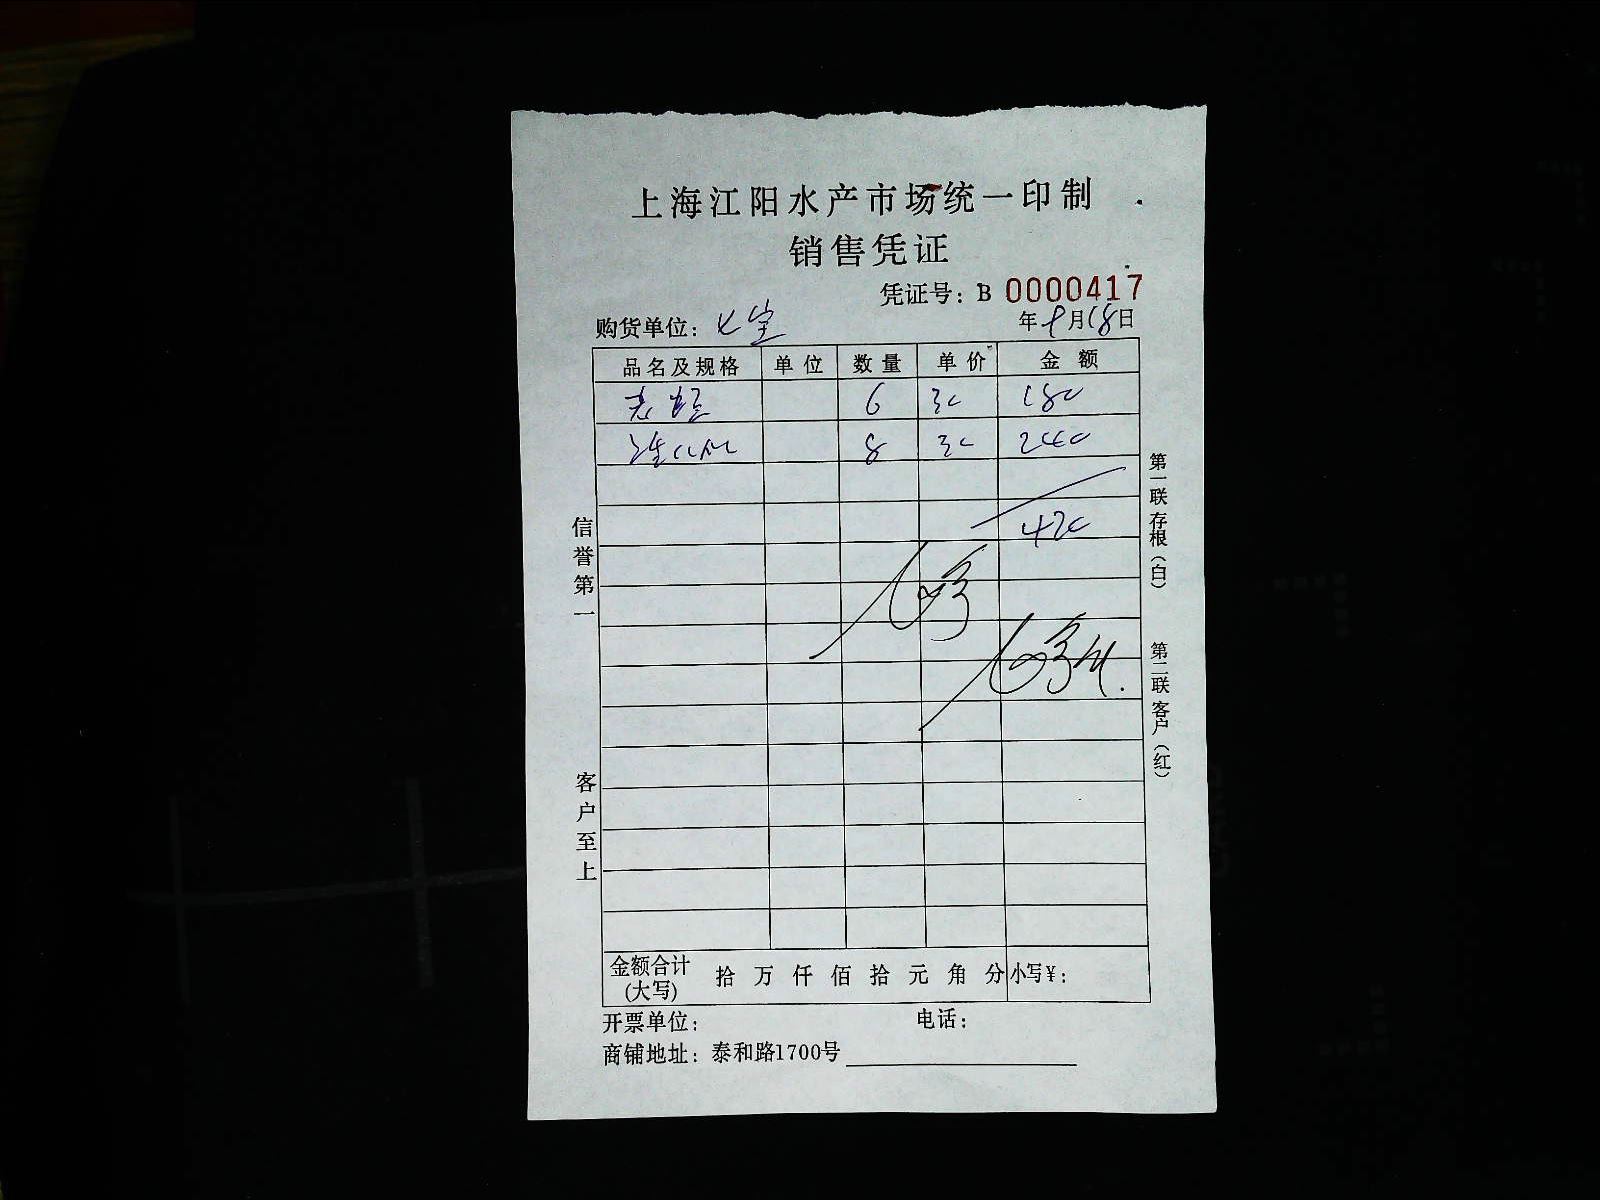 上海江阳水产市场统一印制
销售凭证
凭证号：B 0000417
购货单位：七宝 年 月18日
品名及规格 单位 数量 单价 金额
6 30 180
8 30 240
420
信誉第一
客户至上
第一联存根（白）
第二联客户（红）
金额合计(大写) 拾 万 仟 佰 拾 元 角 分 小写¥：
开票单位： 电话：
商铺地址：泰和路1700号